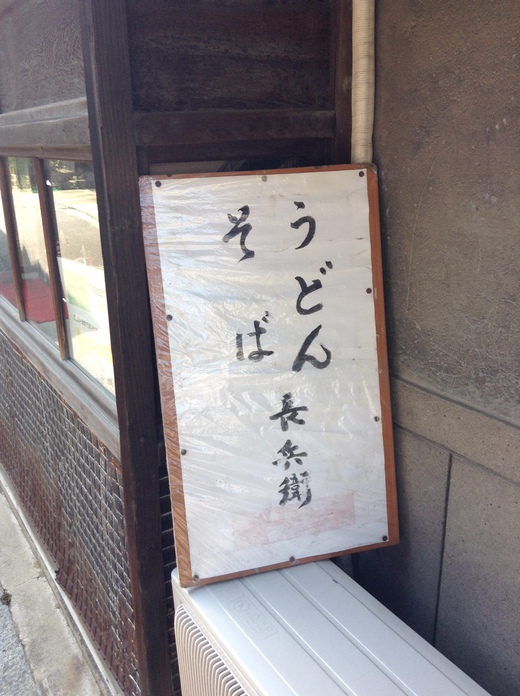 うどん
そば
長兵衛